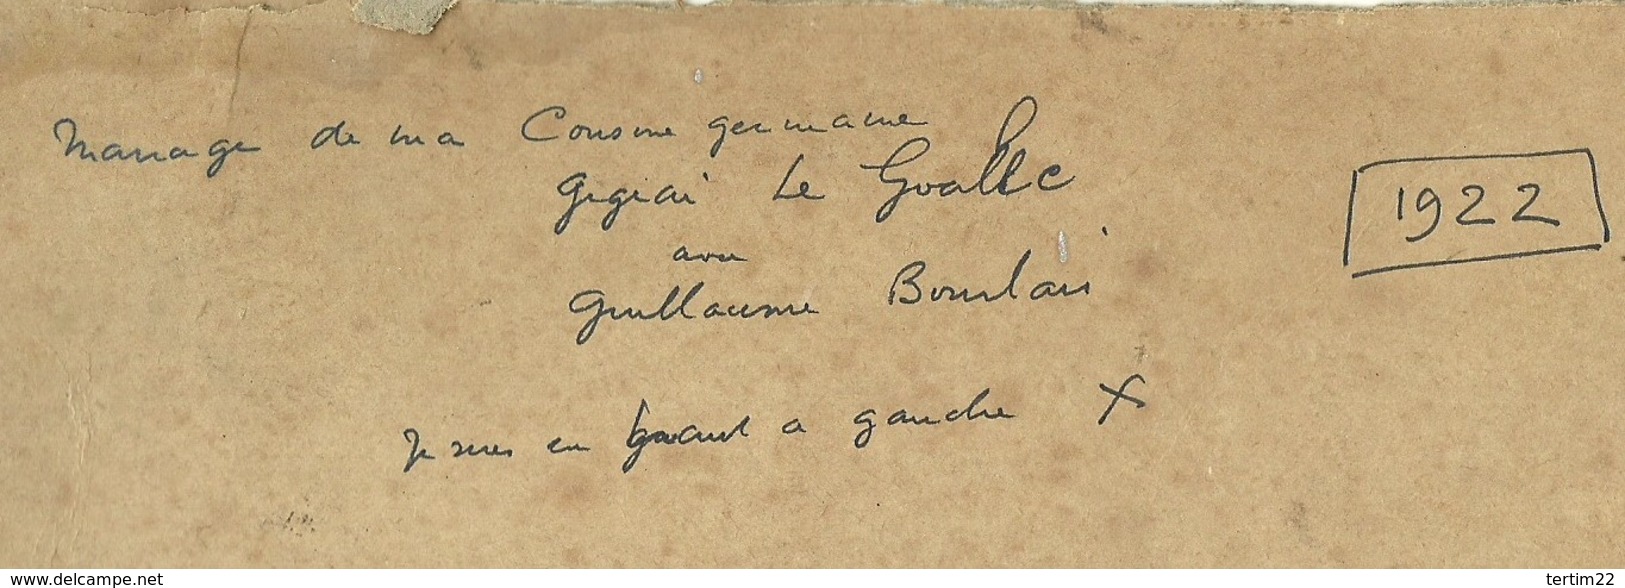 Mariage de ma Cousine germaine
Le Goallec
avec
Guillaume
Je suis en haut a gauche X
1922
www.delcampe.net
tertim22